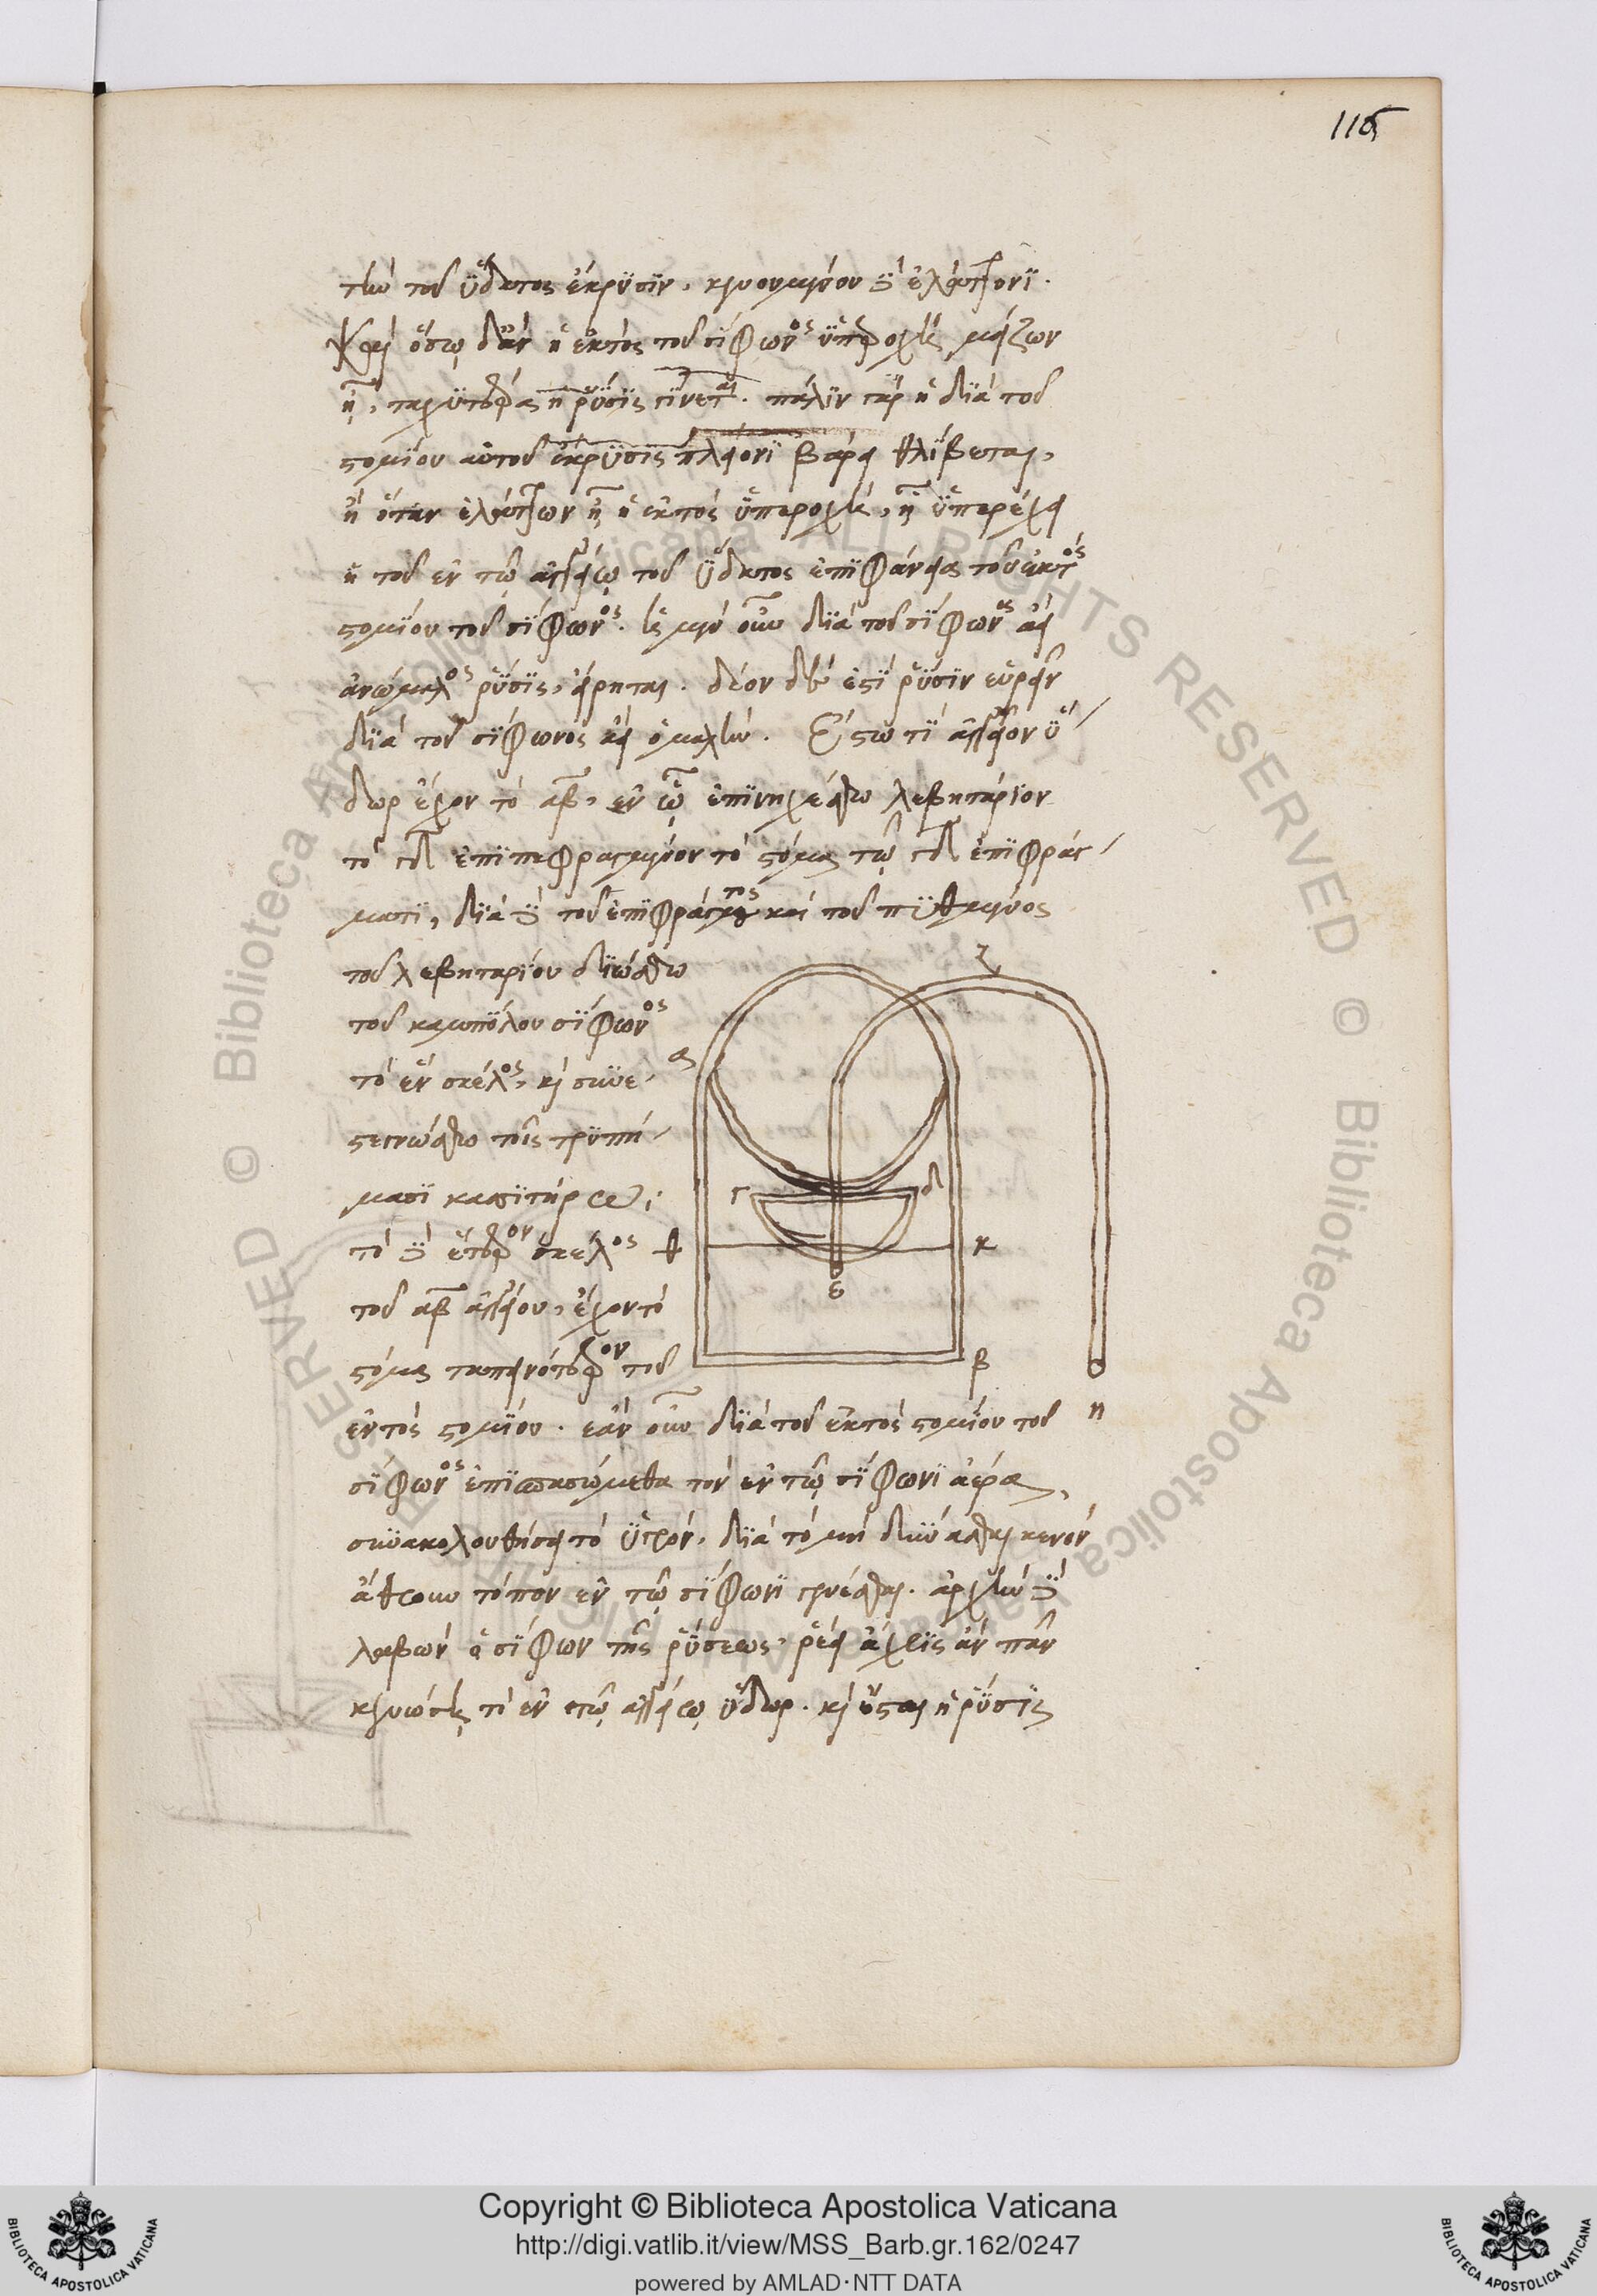 115
τὴν τοῦ ὕδατος ἔκρυσιν, κενουμένου δὲ ἐλάττονι.
καὶ ὅσῳ δ' ἂν ἡ ἐκτὸς τοῦ σίφωνος ὑπεροχὴ μείζων
ᾖ, ταχυτέρα ἡ ῥύσις γίνεται. πάλιν γὰρ ἡ διὰ τοῦ
στομίου αὐτοῦ ἔκρυσις πλείονι βάρει θλίβεται,
ἢ ὅταν ἐλάττων ᾖ ἡ ἐκτὸς ὑπεροχὴ, ᾗ ὑπερέχει
ἡ τοῦ ἐν τῷ ἀγγείῳ τοῦ ὕδατος ἐπιφάνεια τοῦ ἐκτὸς
στομίου τοῦ σίφωνος. ἡ μὲν οὖν διὰ τοῦ σίφωνος ἀεὶ
ἀνώμαλος ῥύσις, εἴρηται. δέον δὲ ἐστὶ ῥύσιν εὑρεῖν
διὰ τοῦ σίφωνος ἀεὶ ὁμαλήν. Ἔστω τι ἀγγεῖον ὕ
δωρ ἔχον τὸ αβ, ἐν ᾧ ἐπινηχέσθω λεβητάριον
τὸ γδ ἐπιπεφραγμένον τὸ στόμα τῷ γδ ἐπιφράγ
ματι, διὰ δὲ τοῦ ἐπιφράγματος καὶ τοῦ πυθμένος
τοῦ λεβηταρίου διώσθω
τοῦ καμπύλου σίφωνος
τὸ ἓν σκέλος, καὶ συνε
στεγνώσθω τοῖς τρυπή
μασι κασσιτήρῳ;
τὸ δὲ ἕτερον σκέλος
τοῦ αβ ἀγγείου, ἔχον τὸ
στόμα ταπεινότερον τοῦ
ἐντὸς στομίου. ἐὰν οὖν διὰ τοῦ ἐκτὸς στομίου τοῦ
σίφωνος ἐπισπασώμεθα τὸν ἐν τῷ σίφωνι ἀέρα,
συνακολουθήσει τὸ ὑγρὸν, διὰ τὸ μὴ δύνασθαι κενὸν
ἄθρουν τόπον ἐν τῷ σίφωνι γενέσθαι. ἀρχὴν δὲ
λαβὼν ὁ σίφων τῆς ῥύσεως, ῥέει ἄχρις ἂν πᾶν
κενώσῃ τὸ ἐν τῷ ἀγγείῳ ὕδωρ. καὶ ἔσται ἡ ῥύσις
ζ
α
γ
δ
θ
κ
ε
β
η
© Biblioteca Apostolica Vaticana ALL RIGHTS RESERVED © Biblioteca Apostolica Vaticana ALL RIGHTS RESERVED
BIBLIOTECA APOSTOLICA VATICANA
Copyright © Biblioteca Apostolica Vaticana
http://digi.vatlib.it/view/MSS_Barb.gr.162/0247
powered by AMLAD·NTT DATA
BIBLIOTECA APOSTOLICA VATICANA